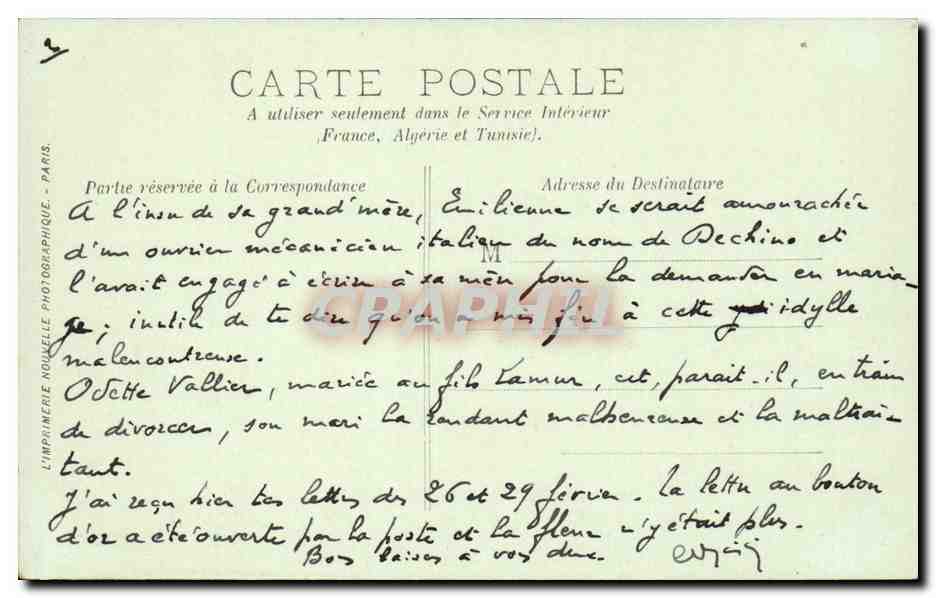 2
CARTE POSTALE
A utiliser seulement dans le Service Intérieur
(France, Algérie et Tunisie).
L'IMPRIMERIE NOUVELLE PHOTOGRAPHIQUE. - PARIS.
Partie réservée à la Correspondance
Adresse du Destinataire
M
CPAPHIL
A l'insu de sa grand'mère, Emilienne se serait amourachée
d'un ouvrier mécanicien italien du nom de Dechino et
l'avait engagé à écrire à sa mère pour la demander en maria-
ge ; inutile de te dire qu'on a mis fin à cette idylle
malencontreuse.
Odette Vallier, mariée au fils Lamur, est, parait-il, en train
de divorcer, son mari la rendant malheureuse et la maltrai-
tant.
J'ai reçu hier tes lettres des 26 et 29 février. La lettre au bouton
d'or a été ouverte par la poste et la fleur n'y était plus.
Bons baisers à vos deux.